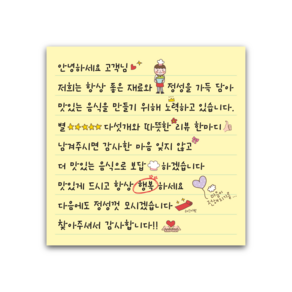 안녕하세요 고객님
저희는 항상 좋은 재료와 정성을 가득 담아
맛있는 음식을 만들기 위해 노력하고 있습니다.
별 다섯개와 따뜻한 리뷰 한마디
남겨주시면 감사한 마음 잊지 않고
더 맛있는 음식으로 보답 하겠습니다
맛있게 드시고 항상 행복 하세요
다음에도 정성껏 모시겠습니다
찾아주셔서 감사합니다!!